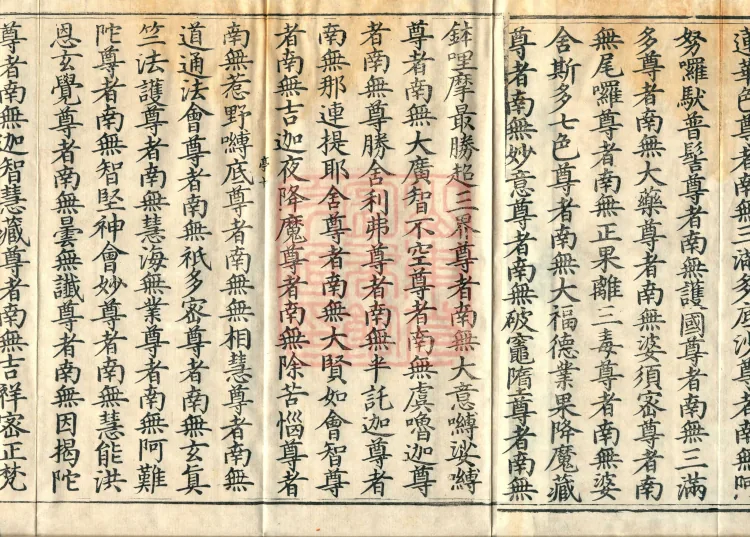 蓮華色尊者南無三滿多底沙尊者南無阿
努囉馱普髻尊者南無護國尊者南無三滿
多尊者南無大藥尊者南無婆須密尊者南
無尾囉尊者南無正果離三毒尊者南無婆
舍斯多七色尊者南無大福德業果降魔藏
尊者南無妙意尊者南無破竈墮尊者南無
鉢哩摩最勝超三界尊者南無大意嚩娑嚩
尊者南無大廣智不空尊者南無虞嚕迦尊
者南無尊勝舍利弗尊者南無半託迦尊者
南無那連提耶舍尊者南無大賢如會智尊
者南無吉迦夜降魔尊者南無除苦惱尊者
亭十
南無惹野嚩底尊者南無無相慧尊者南無
道通法會尊者南無祇多密尊者南無玄真
竺法護尊者南無慧海無業尊者南無阿難
陀尊者南無智堅神會妙尊者南無慧能洪
恩玄覺尊者南無曇無讖尊者南無因揭陀
尊者南無迦智慧藏尊者南無吉祥密正梵